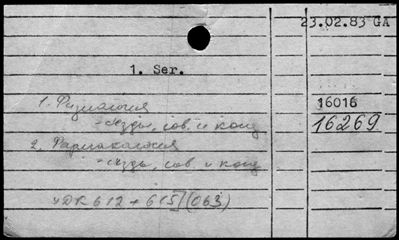 23.02.83 GA
1. Ser.
1. Физиология
16016
- съезды, сов. и конф
16269
2. Фармакология
- съезды, сов. и конф
УДК 612+615](063)